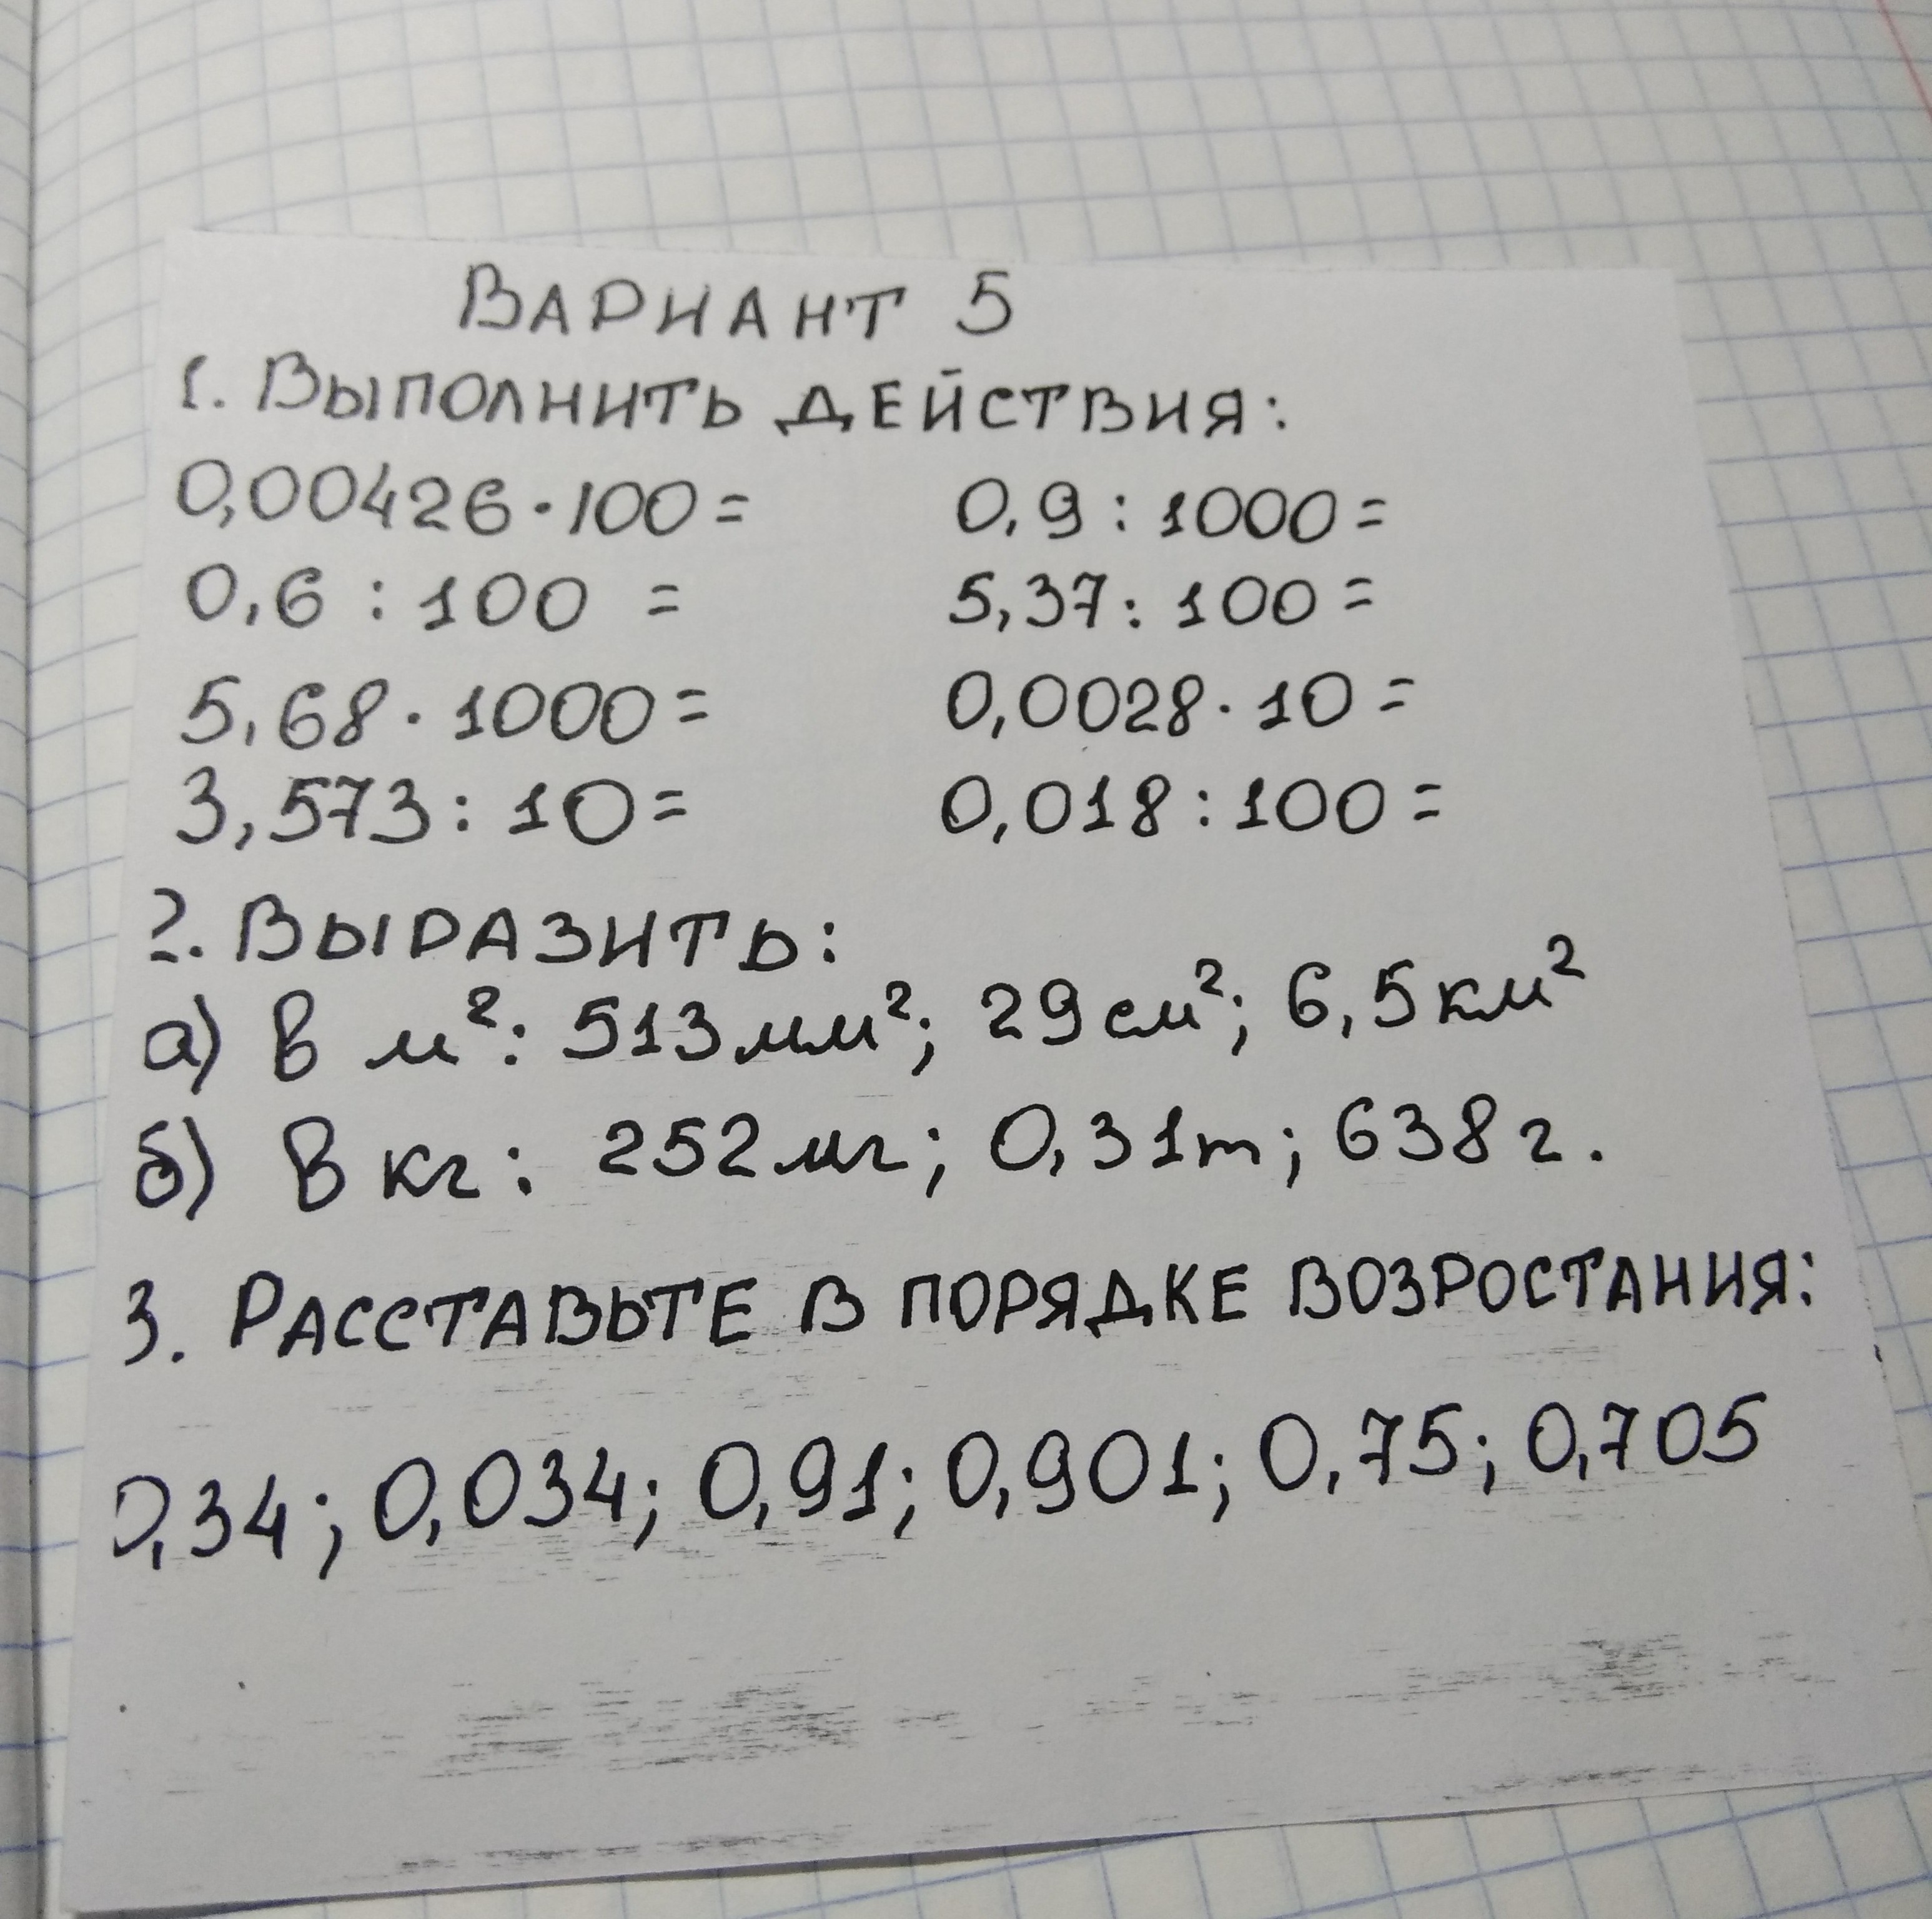 ВАРИАНТ 5
1. ВЫПОЛНИТЬ ДЕЙСТВИЯ:
0,00426·100= 0,9:1000=
0,6:100 = 5,37:100=
5,68·1000= 0,0028·10=
3,573:10= 0,018:100=
2. ВЫРАЗИТЬ:
а) В м²: 513мм²; 29см²; 6,5км²
б) В кг: 252мг; 0,31т; 638г.
3. РАССТАВЬТЕ В ПОРЯДКЕ ВОЗРОСТАНИЯ:
0,34; 0,034; 0,91; 0,901; 0,75; 0,705